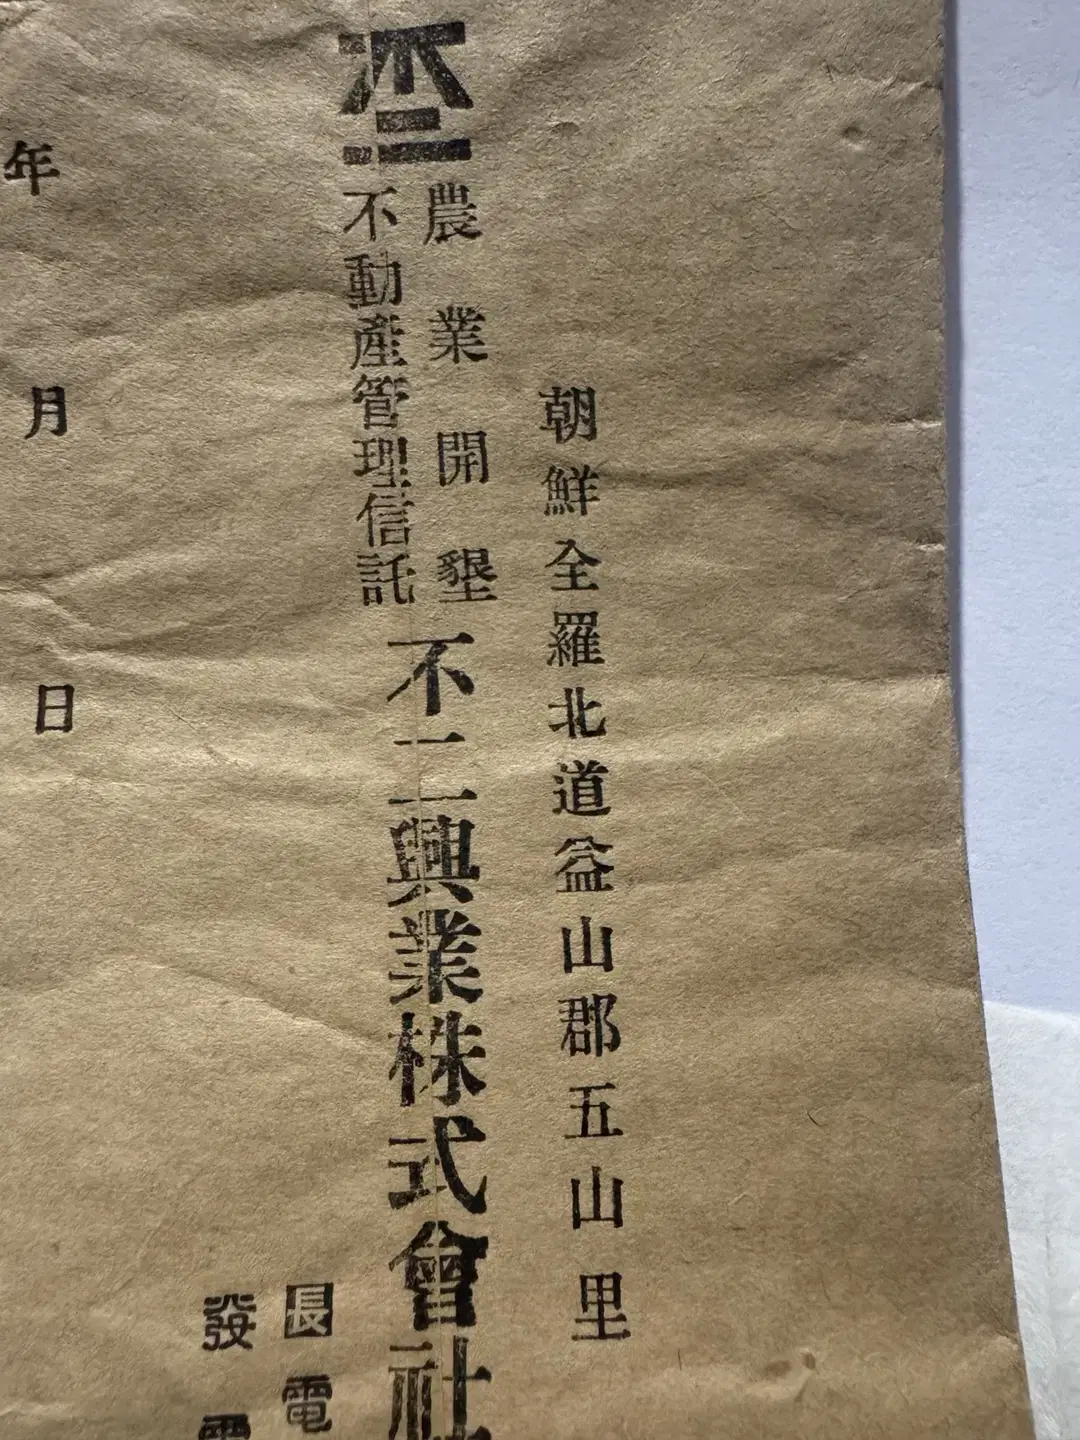 朝鮮全羅北道益山郡五山里
農業開墾
不動產管理信託
不二興業株式會社
長電
發電
年月日